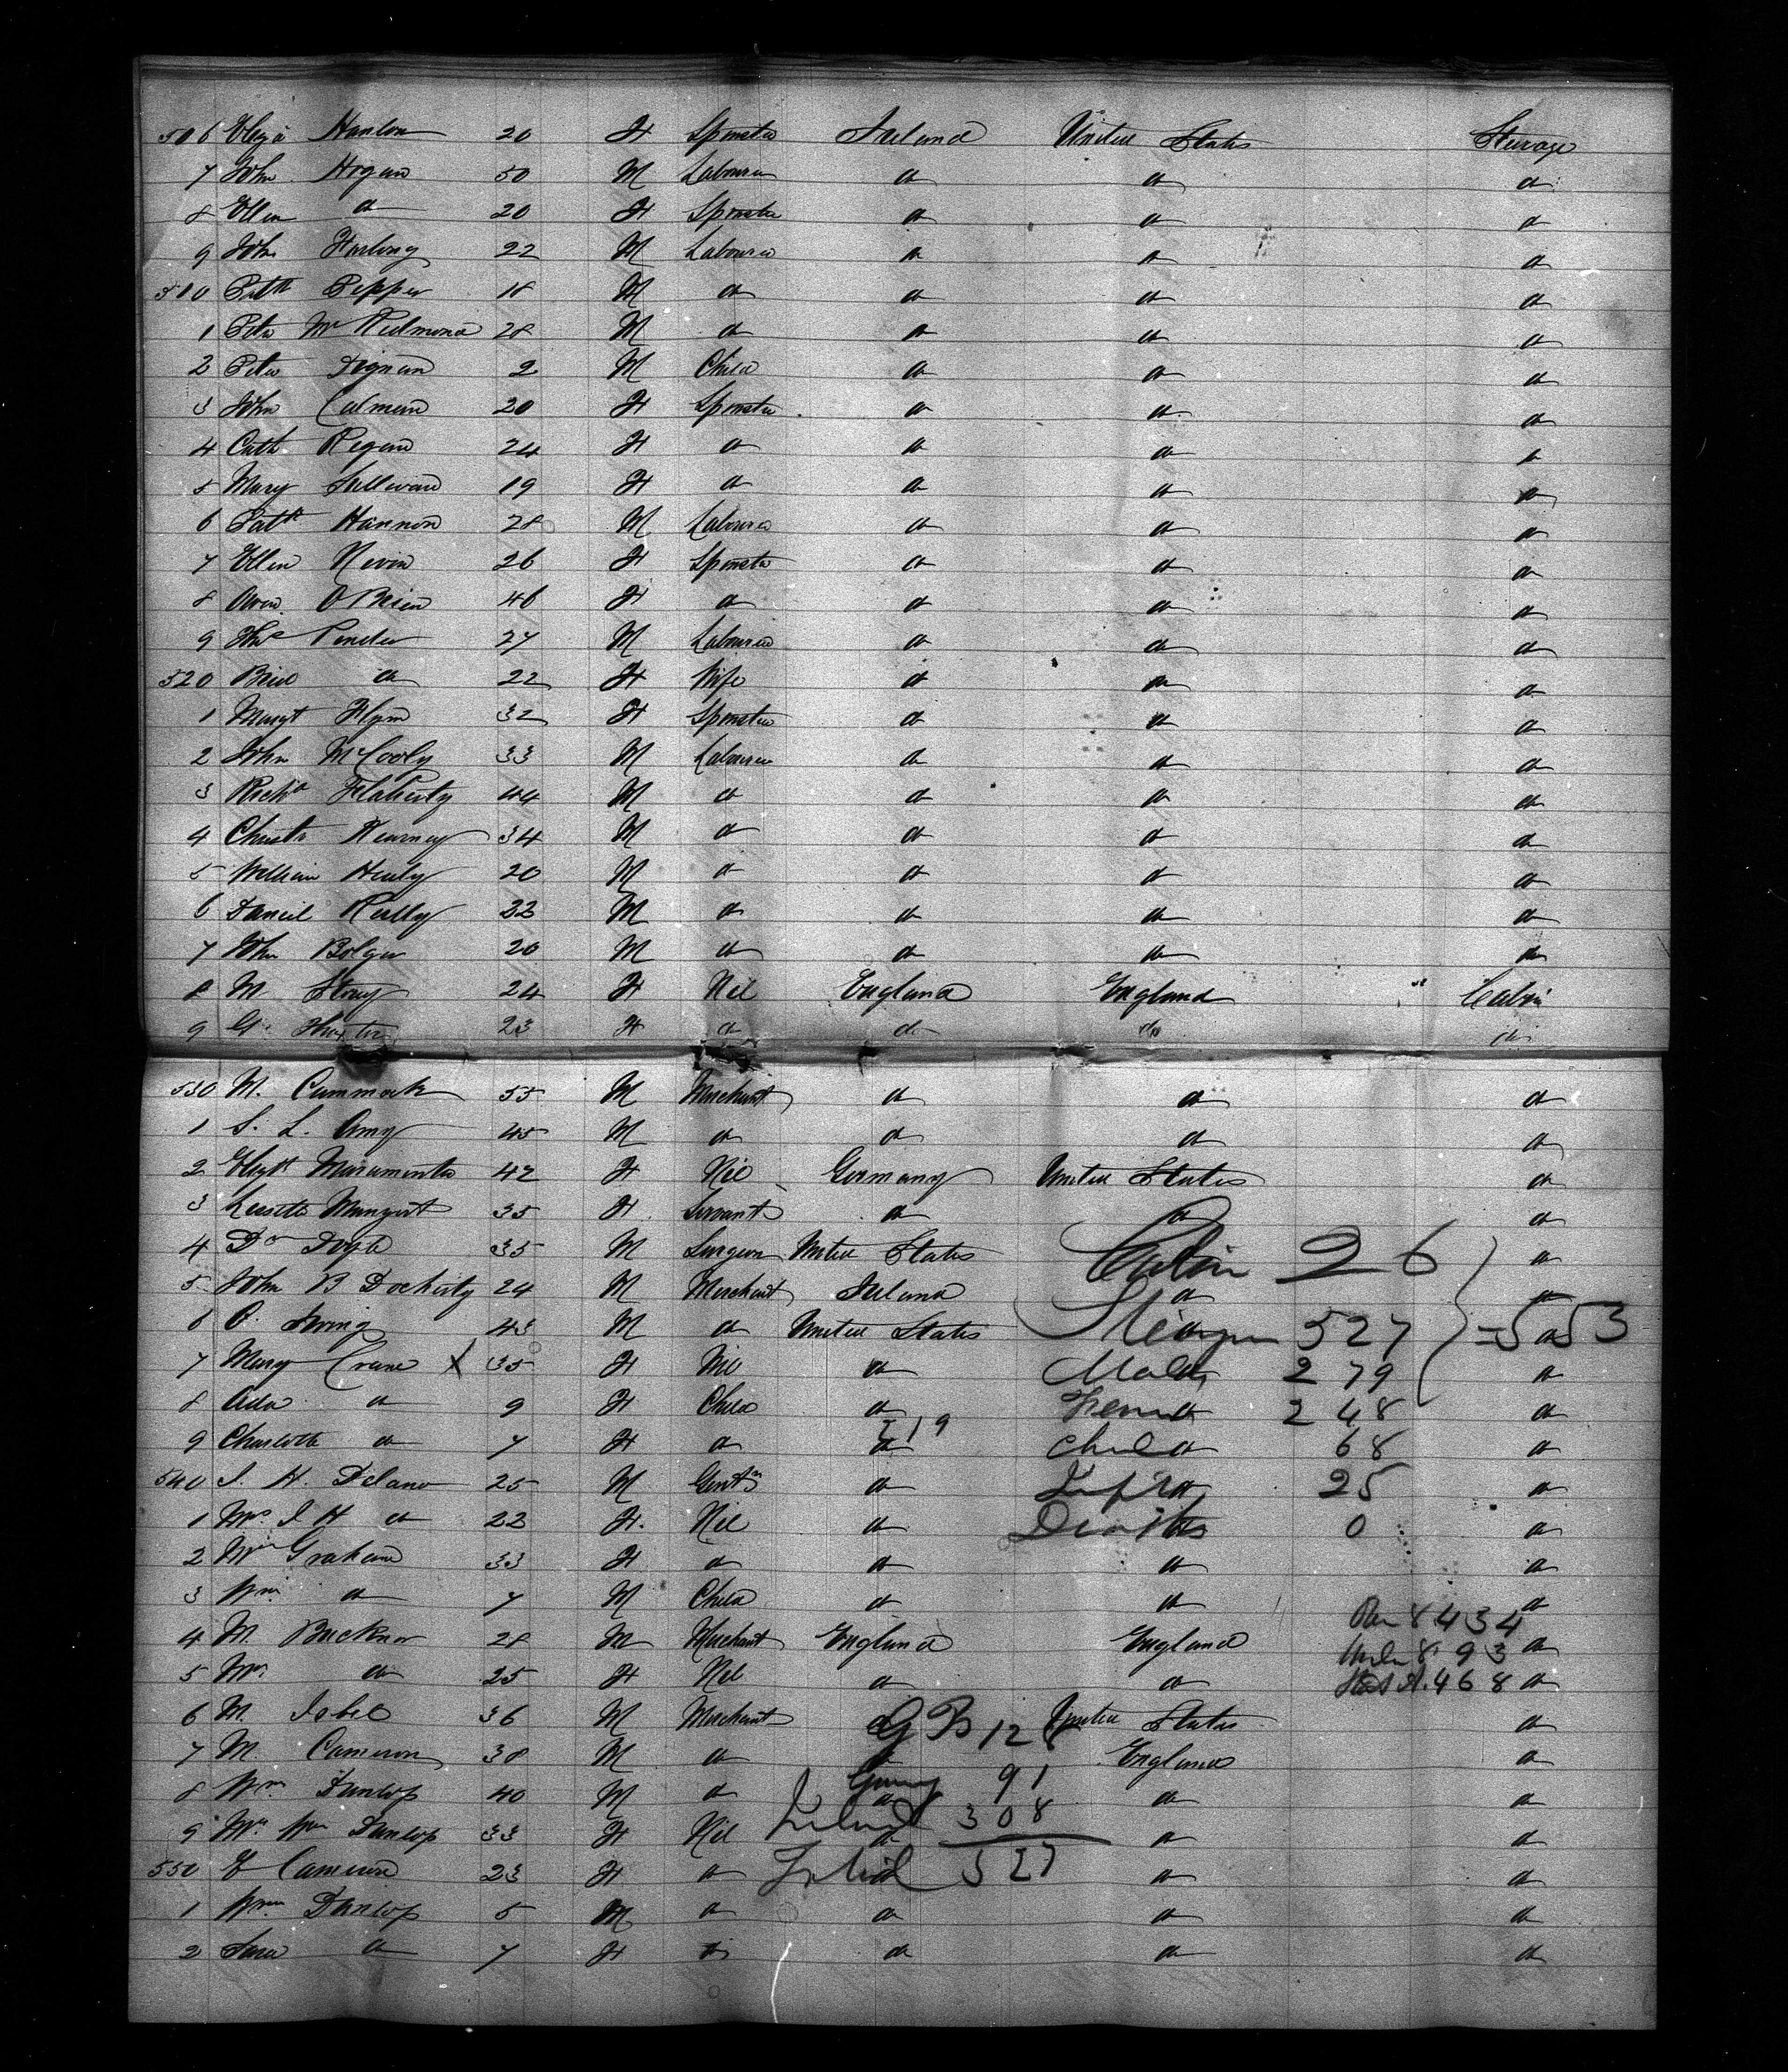 506 Eliza Hanlon 20 F Spinster Ireland United States Steerage
7 John Hogan 50 M Labourer do do do
8 Ellen do 20 F Spinster do do do
9 John Furlong 22 M Labourer do do do
510 Patk Pepper 18 M do do do do
1 Peter McRedmond 28 M do do do do
2 Peter Dignan 2 M Child do do do
3 John Colman 20 F Spinster do do do
4 Cath Regan 24 F do do do do
5 Mary Sullivan 19 F do do do do
6 Patk Hannon 28 M Labourer do do do
7 Ellen Nevin 26 F Spinster do do do
8 Owen O'Brien 46 F do do do do
9 Thos Pender 27 M Labourer do do do
520 Brid do 22 F Wife do do do
1 Margt Flynn 32 F Spinster do do do
2 John McCooly 33 M Labourer do do do
3 Richd Flaherty 44 M do do do do
4 Christr Kearney 34 M do do do do
5 William Healy 20 M do do do do
6 Daniel Kelly 22 M do do do do
7 John Bolger 20 M do do do do
8 M Story 24 F Nil England England " Cabin
9 23 F do do do do
530 M. Cammack 55 M Merchant do do do
1 S. L. Amy 45 M do do do do
2 42 F Nil Germany United States do
3 35 F Servant do do do
4 Dr 35 M Surgeon United States do
Cabin 26
5 John B Docherty 24 M Merchant Ireland do do
6 O. 43 M do United States do
Steerage 527 = 553
7 Mary Crane X 35 F Nil do do
Males 279
8 Ada do 9 F Child do do
Fem 248
119
9 Charlotte do 7 F do do do
Child 68
540 J. H. Delano 25 M Gentn do do
Infts 25
1 Mrs J H do 22 F. Nil do do
Deaths 0
2 Mrs Graham 33 F do do do do
3 Wm do 7 M Child do do do
8434
4 M. Buckner 28 M Merchant England England do
893
5 Mrs do 25 F Nil do do do
468
6 M. Isbel 36 M Merchant do United States do
GB 128
7 M. Cameron 38 M do do England do
Germy 91
8 Wm Dunlop 40 M do do do do
Ireland 308
9 Mrs Wm Dunlop 33 F Nil do do do
550 E Cameron 23 F do do do do
Total 527
1 Wm Dunlop 5 M do do do do
2 do 7 F do do do do